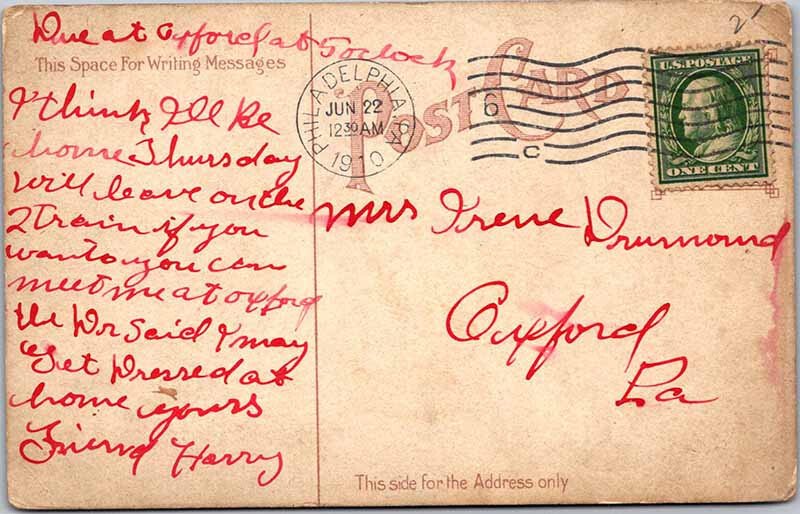 Due at Oxford at 5 oclock
This Space For Writing Messages
I think I'll be
home Thursday
will leave on the
2 train if you
want you can
meet me at oxford
the Dr Said I may
Get Dressed at
home yours
Friend Harry
POST CARD
PHILADELPHIA, PA
JUN 22
12 30 AM
1910
6
C
2
U.S. POSTAGE
ONE CENT
Mrs Irene Drumond
Oxford
Pa
This side for the Address only